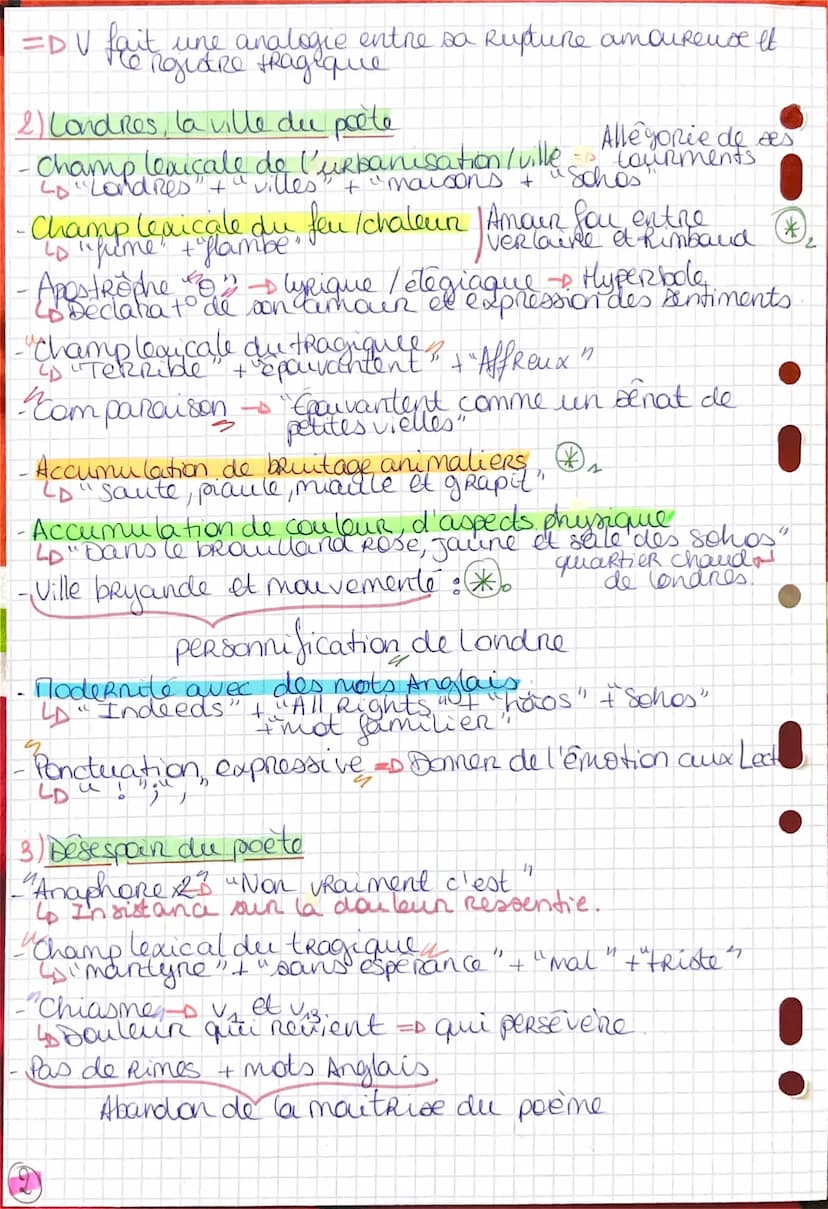 =D V fait une analogie entre sa rupture amoureuse et
le registre tragique
2) Londres, la ville du poète
- Champ lexicale de l'urbanisation/ville => Allégorie de ses tourments
↳ "Londres" + "villes" + "maisons + "Sohos"
- Champ lexicale du feu/chaleur | Amour fou entre
↳ "fume" + "flambe" | Verlaine et Rimbaud *2
- Apostrôche "Ô" → lyrique / élégiaque → Hyperbole
↳ Déclarat° de son amour et expression des sentiments
- "Champ lexicale du tragique"
↳ "Terrible" + "épouvantent" + "Affreux"
- "Comparaison → "Épouvantent comme un sénat de
petites vielles"
- Accumulation de bruitage animaliers *1
↳ "Saute, piaule, miaule et grapit"
- Accumulation de couleur, d'aspects physique
↳ "Dans le brouilland rose, jaune et sale des Sohos"
quartier chaud
de Londres.
- Ville bryande et mouvementé : *0
personnification de Londre
- Modernité avec des mots Anglais
↳ "Indeeds" + "All Rights" + "hâos" + "Sohos"
+ "mot familier"
- Ponctuation expressive => Donner de l'émotion aux Lect
↳ "!";","
3) Désespoir du poète
- "Anaphore x2" "Non vraiment c'est"
↳ Insistance sur la douleur ressentie.
- "Champ lexical du tragique"
↳ "martyre" + "sans espérance" + "mal" + "triste"
- "Chiasme → v1 et v13
↳ Douleur qui revient => qui persévère.
- Pas de Rimes + mots Anglais
Abandon de la maitrise du poème
2